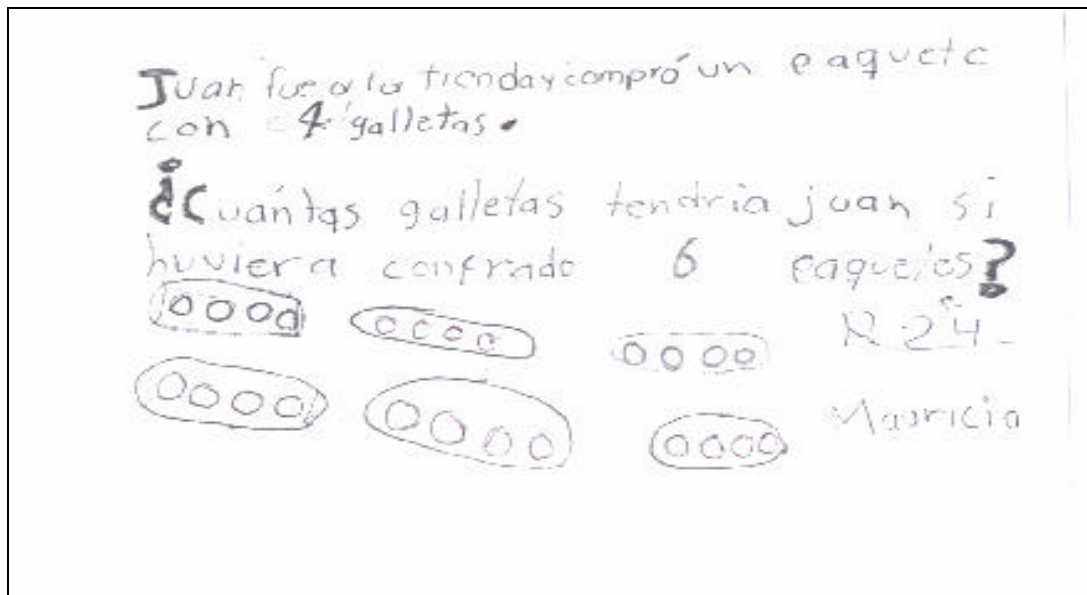 Juan fue a la tienda y compró un paquete
con 4 galletas.
¿Cuántas galletas tendria juan si
huviera confrado 6 paquetes?
R 24
Mauricio